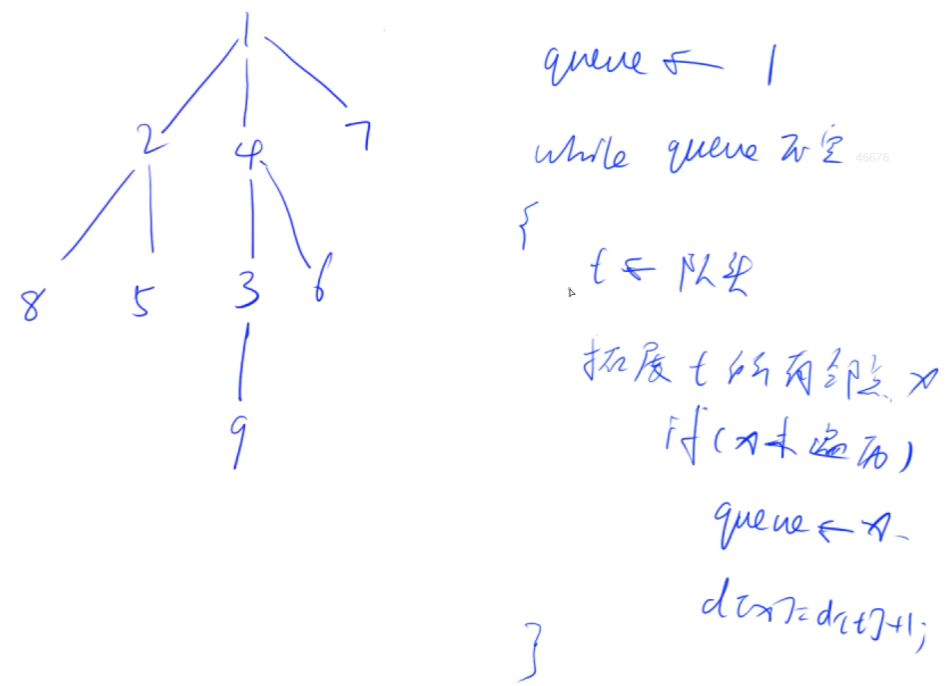 1
2 4 7
8 5 3 6
9
queue ← 1
while queue 不空
46676
{
t ← 队头
拓展 t 所有邻点 x
if (x未遍历)
queue ← x
d[x]=d[t]+1;
}